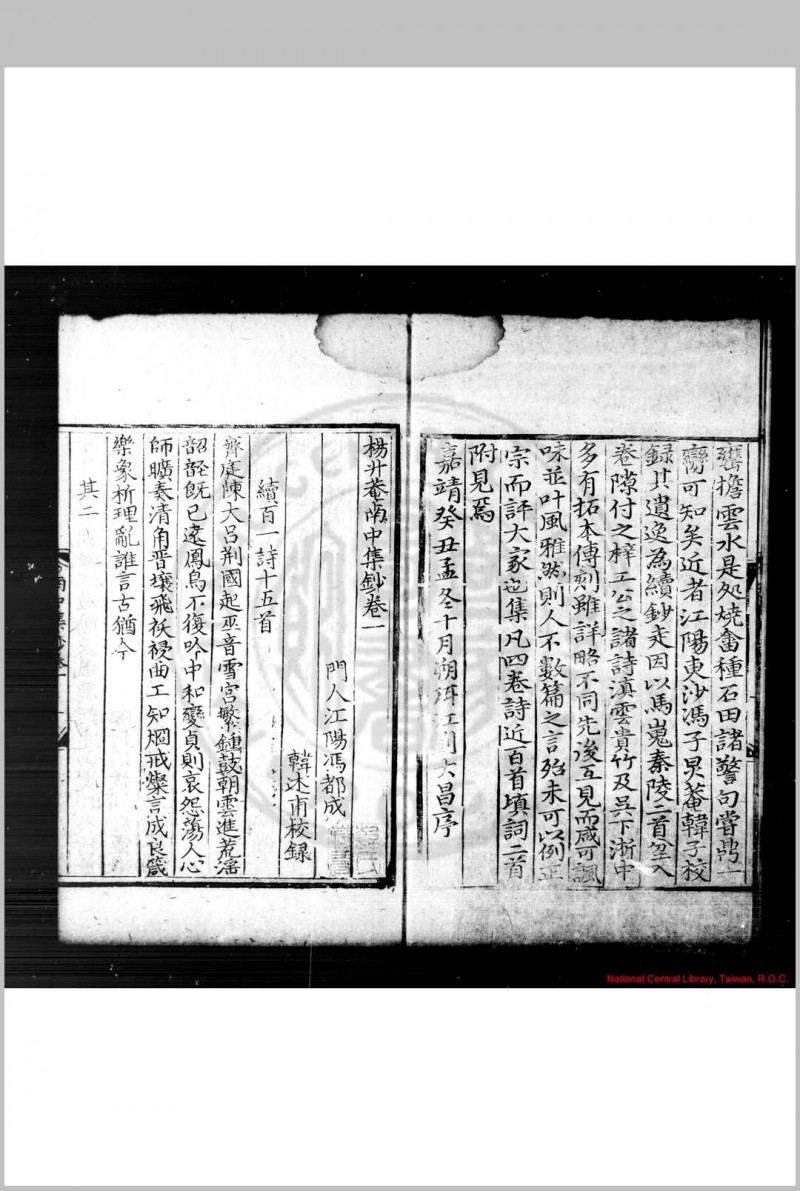 甕擔雲水是処燒畬種石田諸警句甞鸬一
臠可知矣近者江陽東沙馮子炅菴韓子校
録其遺逸為續鈔走因以馬嵬秦陵二首坌入
卷隙付之梓工公之諸詩滇雲貴竹及吳下浙中
多有拓本傳刻雖詳略不同先後互見而咸可諷
味並叶風雅然則人不數篇之言殆未可以例正
宗而評大家也集凡四卷詩近百首填詞二首
附見焉
嘉靖癸丑孟冬十月朔珥江劉大昌序
楊升菴南中集鈔卷一
門人江陽馮都成
韓述甫校録
續百一詩十五首
齊庭陳大呂荊國起巫音雪宮繁鍾鼓朝雲進荒滛
韶䪫既已逺鳳鳥不復吟中和變貞則哀怨蕩人心
師曠奏清角晋壤飛祅祲曲工知烟戒爕言成良箴
樂象析理亂誰言古猶今
其二
National Central Library, Taiwan, R.O.C.